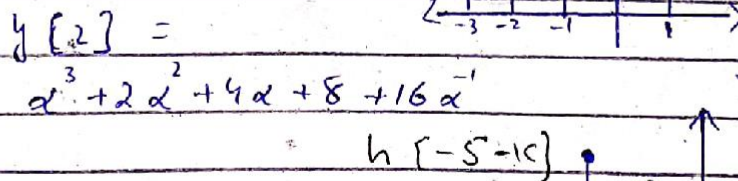 y[2] =
-3 -2 -1 1
α³ + 2α² + 4α + 8 + 16α⁻¹
h[-5-k]